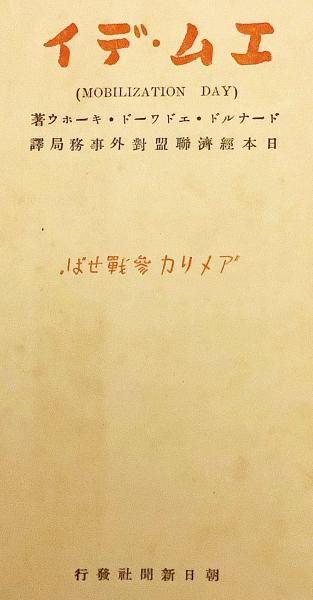 エム・デイ
(MOBILIZATION DAY)
ドーナルド・エドワード・キーホウ著
日本經濟聯盟對外事務局譯
"アメリカ參戰せば"
朝日新聞社發行